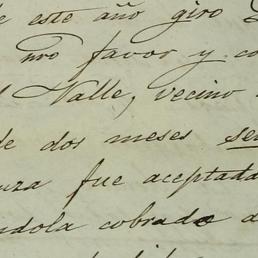 este año giro
nro favor y
Valle, vecino
de dos meses
fue aceptada
cobrado